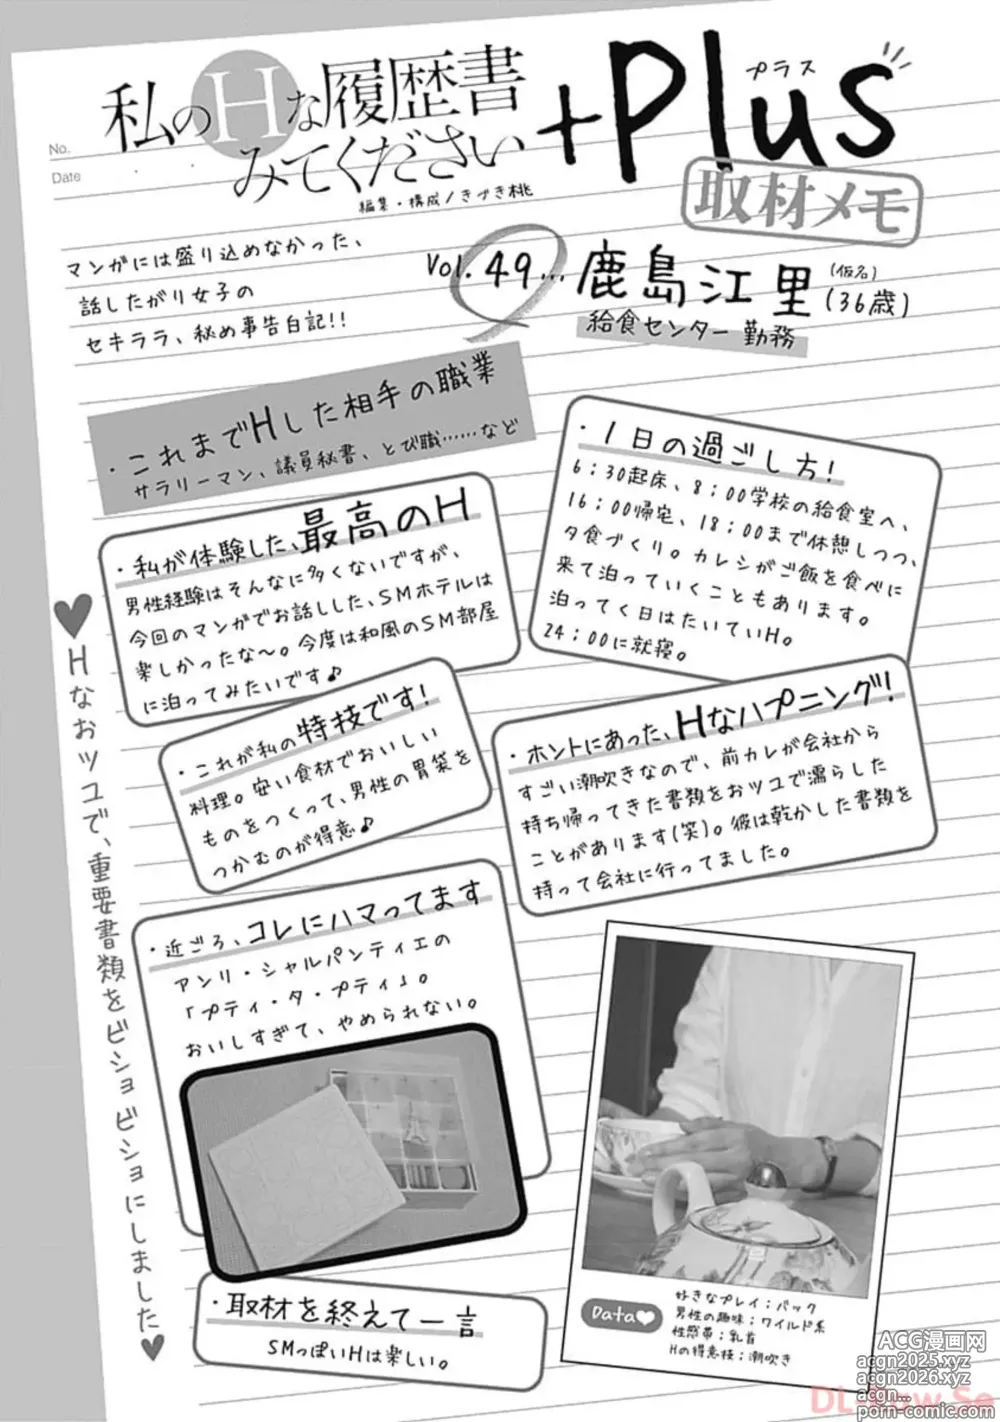 No.
Date
私のHな履歴書
みてください
+Plus
プラス
取材メモ
編集・構成/きづき桃
マンガには盛り込めなかった、
話したがり女子の
セキララ、秘め事告白記!!
Vol.49…鹿島江里(仮名)(36歳)
給食センター勤務
・これまでHした相手の職業
サラリーマン、議員秘書、とび職……など
・1日の過ごし方!
6:30起床、8:00学校の給食室へ、
16:00帰宅、18:00まで休憩しつつ、
夕食づくり。カレシがご飯を食べに
来て泊っていくこともあります。
泊ってく日はたいていH。
24:00に就寝。
・私が体験した、最高のH
男性経験はそんなに多くないですが、
今回のマンガでお話しした、SMホテルは
楽しかったな〜。今度は和風のSM部屋
に泊ってみたいです♪
・これが私の特技です!
料理。安い食材でおいしい
ものをつくって、男性の胃袋を
つかむのが得意♪
・ホントにあった、Hなハプニング!
すごい潮吹きなので、前カレが会社から
持ち帰ってきた書類をおツユで濡らした
ことがあります(笑)。彼は乾かした書類を
持って会社に行ってました。
・近ごろ、コレにハマってます
アンリ・シャルパンティエの
「プティ・タ・プティ」。
おいしすぎて、やめられない。
♥Hなおツユで、重要書類をビショビショにしました♥
・取材を終えて一言
SMっぽいHは楽しい。
Data♥
好きなプレイ;バック
男性の趣味;ワイルド系
性感帯;乳首
Hの得意技;潮吹き
ACG漫画网
acgn2025.xyz
acgn2026.xyz
acgn...
porn-comic.com